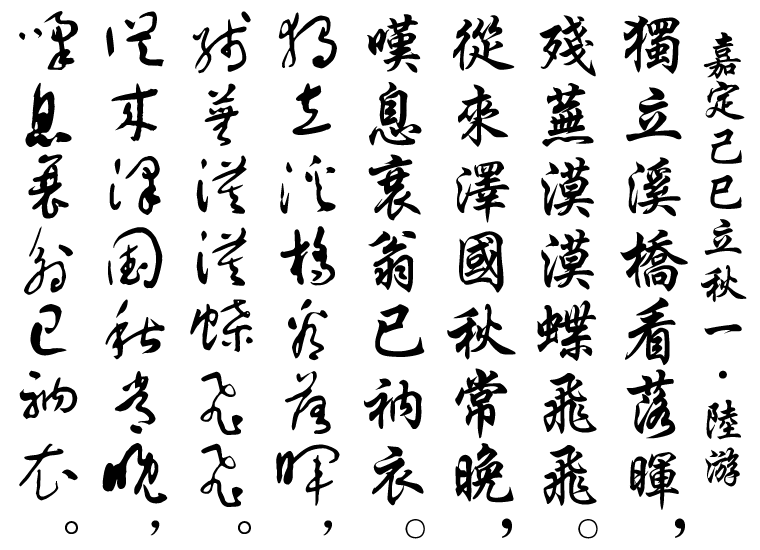 嘉定己巳立秋一·陸游
獨立溪橋看落暉，
殘蕪漠漠蝶飛飛。
從來澤國秋常晚，
嘆息衰翁已衲衣。
獨立溪橋看落暉，
殘蕪漠漠蝶飛飛。
從來澤國秋常晚，
嘆息衰翁已衲衣。